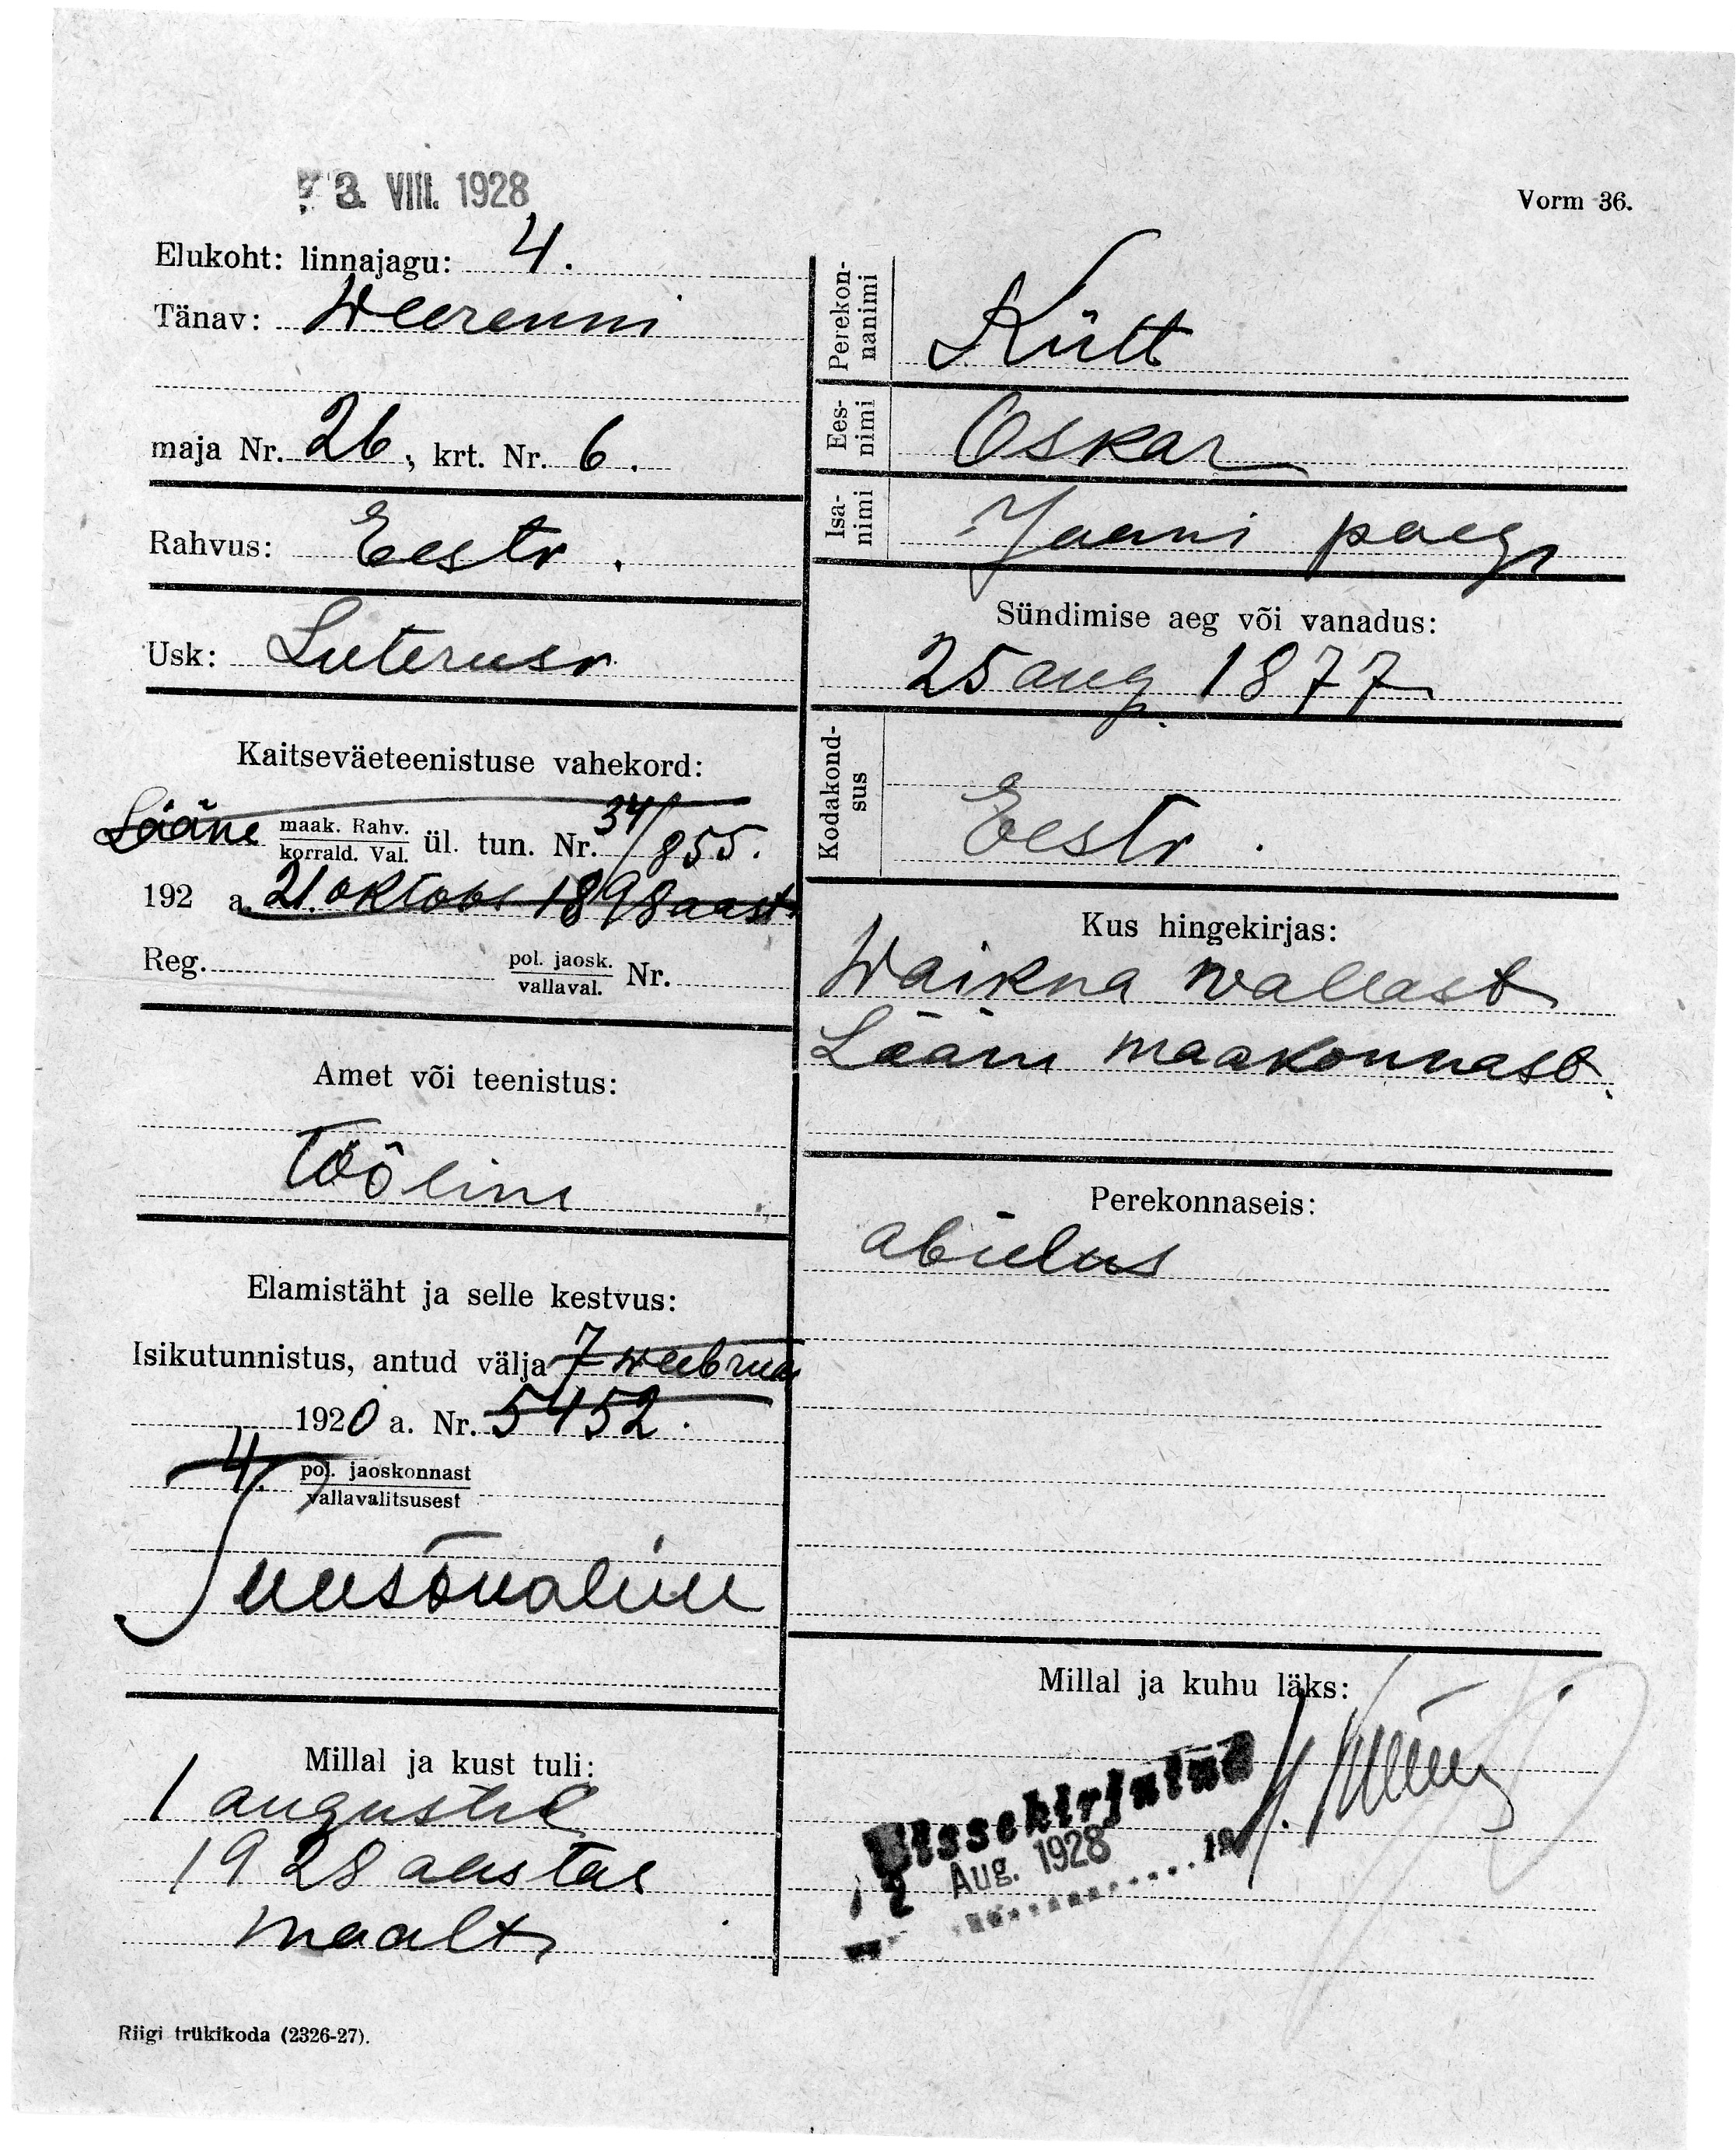 3. VIII. 1928
Vorm 36.
Elukoht: linnajagu: 4.
Tänav: Weerenni
maja Nr. 26, krt. Nr. 6.
Rahvus: Eesti.
Usk: Luterusi
Kaitseväeteenistuse vahekord:
Lääne maak. Rahv. korrald. Val. ül. tun. Nr. 34/855.
192 a. 21. oktobr 1898 aast
Reg. pol. jaosk. vallaval. Nr.
Amet või teenistus:
Tööline
Elamistäht ja selle kestvus:
Isikutunnistus, antud välja 7 weebruar
1920 a. Nr. 5452.
4. pol. jaoskonnast vallavalitsusest
Millal ja kust tuli:
1 augustil
1928 aastal
maalt
Riigi trükikoda (2326-27).
Perekonnanimi Kütt
Eesnimi Oskar
Isanimi Jaani poeg
Sündimise aeg või vanadus:
25 aug. 1877
Kodakondsus
Eesti.
Kus hingekirjas:
Waikna wallast
Lääne maakonnast.
Perekonnaseis:
abielus
Millal ja kuhu läks:
Sissekirjutud
2 Aug. 1928 19